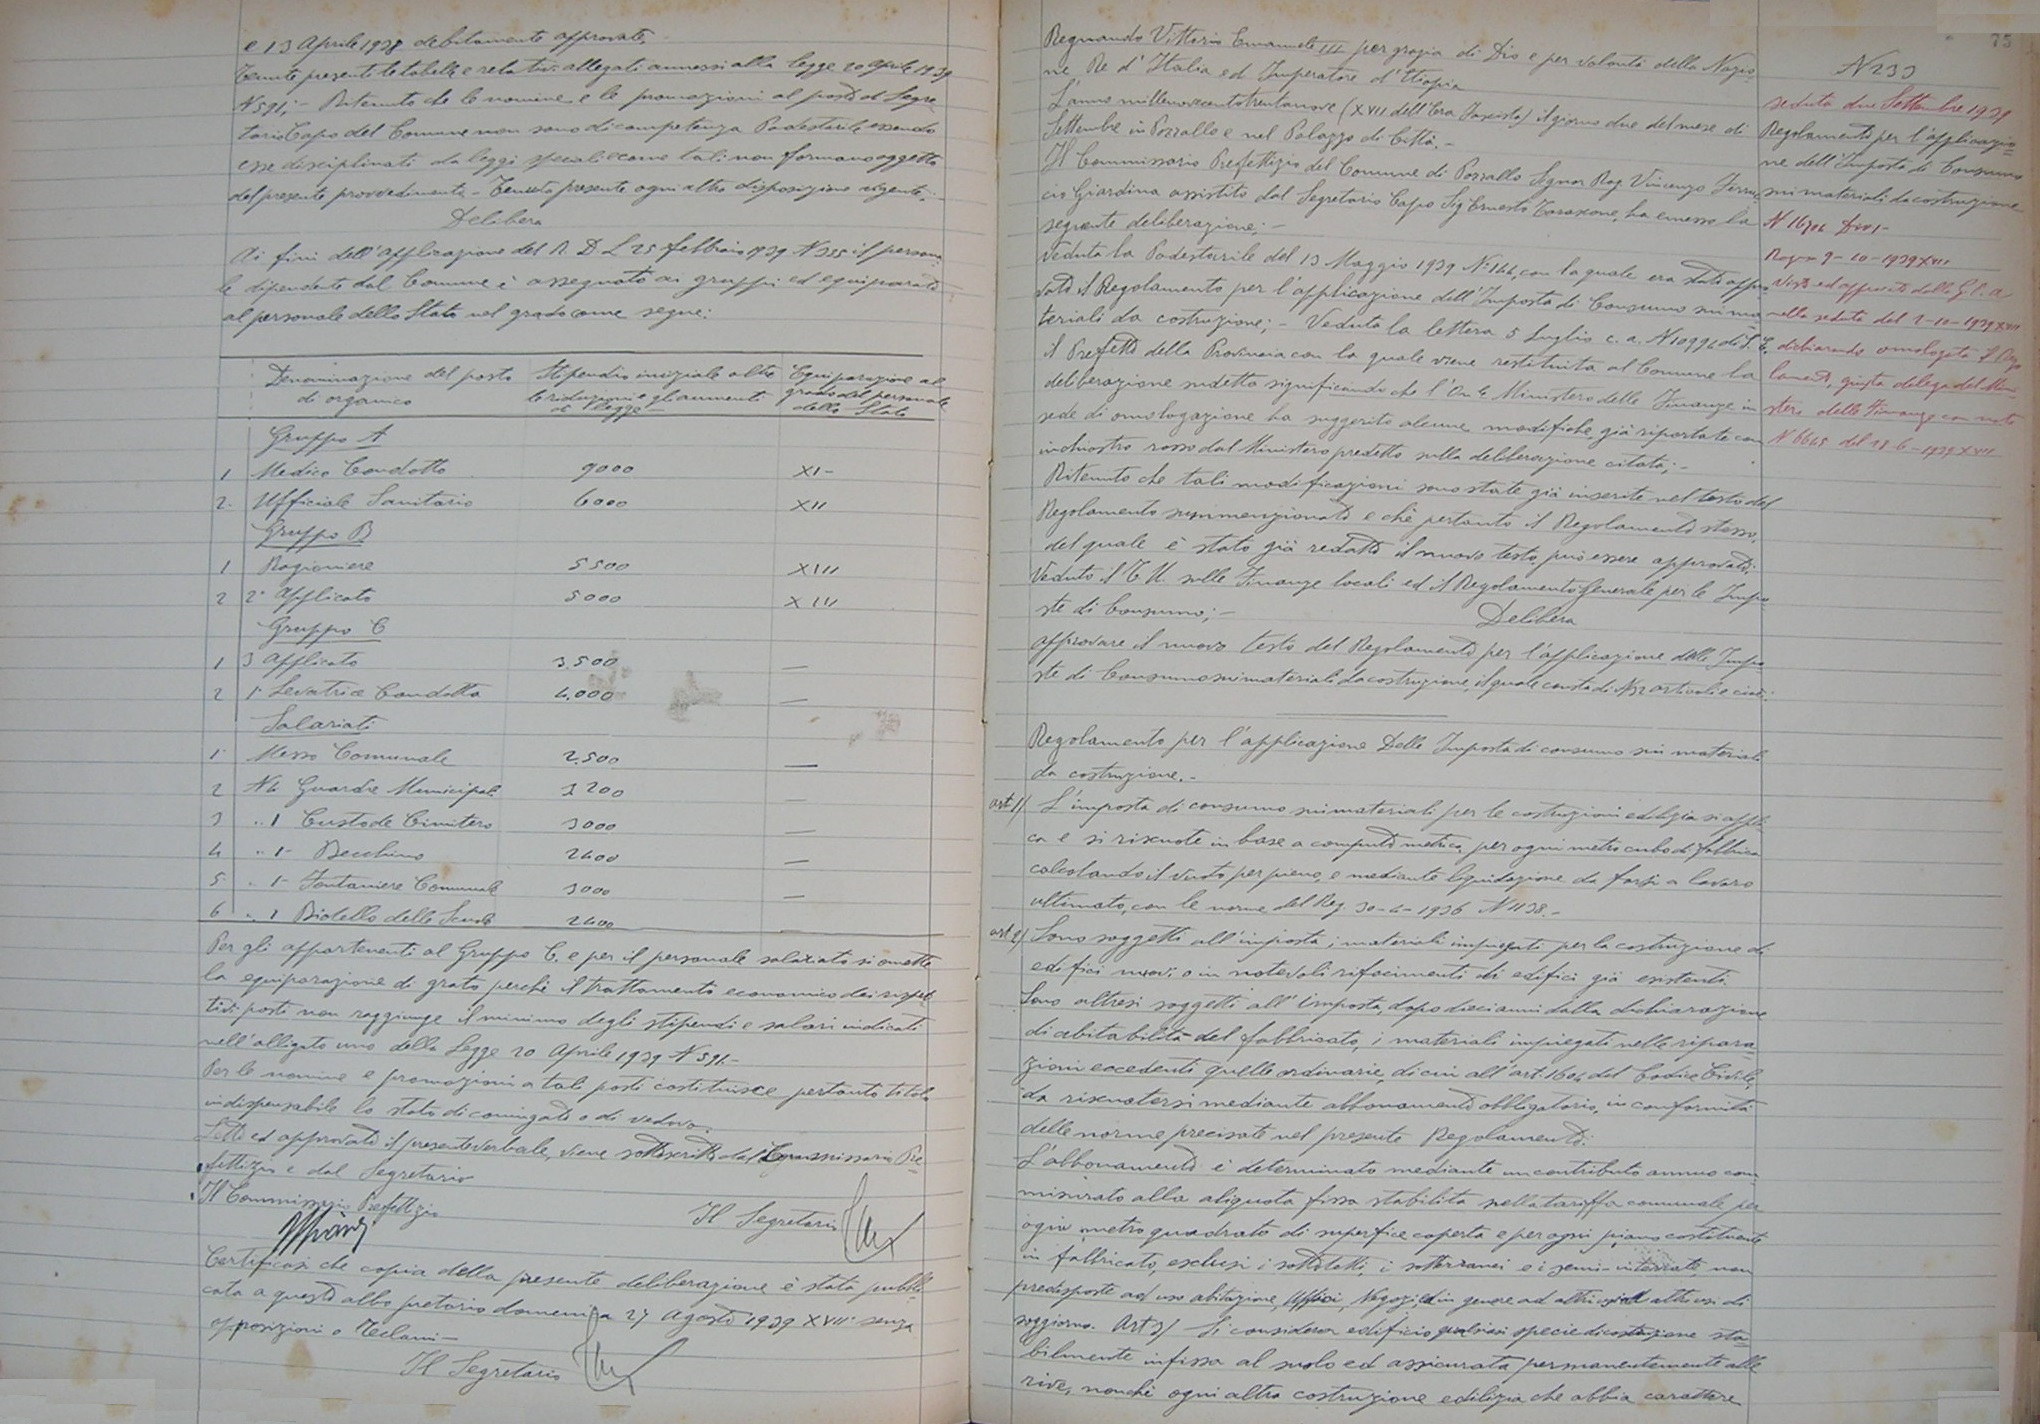 e 13 Aprile 1938 debitamente approvate,
Tenute presenti le tabelle e relativi allegati annessi alla legge 20 Aprile 1939
N 591;- Ritenuto che le nomine e le promozioni al posto di Segre
tario Capo del Comune non sono di competenza Podestarile essendo
esse disciplinati da leggi speciali e come tali non formano oggetto
del presente provvedimento - Tenuta presente ogni altra disposizione vigente;-
Delibera
Ai fini dell'applicazione del R. D. L 25 febbraio 1939 N 335 il persona
le dipendente dal Comune è assegnato ai gruppi ed equiparato
al personale dello Stato nel grado come segue:
Denominazione del posto di organico
Stipendio iniziale oltre le riduzioni e gli aumenti di legge
Equiparazione al grado del personale dello Stato
Gruppo A
1 Medico Condotto 9000 XI-
2. Ufficiale Sanitario 6000 XII
Gruppo B
1 Ragioniere 5500 XIII
2 2° Applicato 5000 XIII
Gruppo C
1 3 Applicato 3.500 —
2 1· Levatrice Condotta 4.000 —
Salariati
1· Messo Comunale 2.500 —
2 N4 Guardie Municipali 3200 —
3 " 1 Custode Cimitero 3000 —
4 " 1- Becchino 2400 —
5 " 1- Fontaniere Comunale 3000 —
6 " 1 Bidello delle Scuole 2400 —
Per gli appartenenti al Gruppo C. e per il personale salariato si omette
la equiparazione di grato perchè il trattamento economico dei rispet
tivi posti non raggiunge il minimo degli stipendi e salari indicati
nell'alligato uno della Legge 20 Aprile 1939 N 591.-
Per le nomine e promozioni a tali posti costituisce pertanto titolo
indispensabile lo stato di coniugato o di vedovo.
Letto ed approvato il presente verbale, viene sottoscritto dal Commissario Pre=
fettizio e dal Segretario
Il Commissario Prefettizio
Il Segretario
Certificasi che copia della presente deliberazione è stata pubbli
cata a questo albo pretorio domenica 27 Agosto 1939 XVII° senza
opposizioni o reclami-
Il Segretario
75
Regnando Vittorio Emanuele III per grazia di Dio e per volontà della Nazio
ne Re d'Italia ed Imperatore d'Etiopia
L'anno millenovecentotrentanove (XVII dell'Era Fascista) il giorno due del mese di
Settembre in Pozzallo e nel Palazzo di Città.-
Il Commissario Prefettizio del Comune di Pozzallo Signor Rag. Vincenzo Ferruc
cio Giardina assistito dal Segretario Capo Sig Ernesto Tarascone, ha emesso la
seguente deliberazione;-
Veduta la Podestarile del 13 Maggio 1939 N. 144, con la quale era stato appro
vato il Regolamento per l'applicazione dell'Imposta di Consumo sui ma
teriali da costruzione;- Veduta la lettera 5 Luglio c. a. N 10996 di S. E.
il Prefetto della Provincia con la quale viene restituita al Comune la
deliberazione sudetta significando che l'On.le Ministero delle Finanze in
sede di omologazione ha suggerito alcune modifiche, già riportate con
inchiostro rosso dal Ministero predetto sulla deliberazione citata;-
Ritenuto che tali modificazioni sono state già inserite nel testo del
Regolamento summenzionato e che pertanto il Regolamento stesso,
del quale è stato già redatto il nuovo testo, può essere approvato;
Veduto il T. U. sulle Finanze locali ed il Regolamento Generale per le Impo
ste di Consumo;-
Delibera
approvare il nuovo testo del Regolamento per l'applicazione delle Impo
ste di Consumo sui materiali da costruzione, il quale consta di N 32 articoli e cioè:
Regolamento per l'applicazione Delle Imposta di consumo sui materiali
da costruzione.-
art. 1/ L'imposta di consumo sui materiali per le costruzioni edilizie si appli
ca e si riscuote in base a computo metrico, per ogni metro cubo di fabbrica
calcolando il vuoto per pieno, e mediante liquidazione da farsi a lavoro
ultimato, con le norme del Reg. 30-4-1936 N 1138.-
art 2/ Sono soggetti all'imposta i materiali impiegati per la costruzione di
edifici nuovi, o in notevoli rifacimenti di edifici già esistenti.
Sono altresì soggetti all'imposta, dopo dieci anni dalla dichiarazione
di abitabilità del fabbricato, i materiali impiegati nelle ripara=
zioni eccedenti quelle ordinarie, di cui all'art. 1604 del Codice Civile,
da riscuotersi mediante abbonamento obbligatorio, in conformità
delle norme precisate nel presente Regolamento:
L'abbonamento è determinato mediante un contributo annuo com
misurato alla aliquota fissa stabilita nella tariffa comunale per
ogni metro quadrato di superfice coperta e per ogni piano costituente
in fabbricato, esclusi i sottotetti, i sotterranei e i semi-interrati, non
predisposte ad uso abitazione, Uffici, Negozi, ed in genere ad altri usi di
soggiorno. Art 3/ Si considera edificio qualsiasi specie di costruzione sta=
bilmente infissa al suolo ed assicurata permanentemente alle
rive, nonchè ogni altra costruzione edilizia che abbia carattere
N 233
seduta due Settembre 1939
Regolamento per l'applicazio=
ne dell'Imposta di Consumo
sui materiali da costruzione
N 16706 Div 1-
Ragusa 9-10-1939 XVII
Visto ed approvato dalla G. P. A.
nella seduta del 2-10-1939 XVII
dichiarando omologato il Rego
lamento, giusta delega del Mini
stero delle Finanze con nota
N 6645 del 18-6-1939 XVII